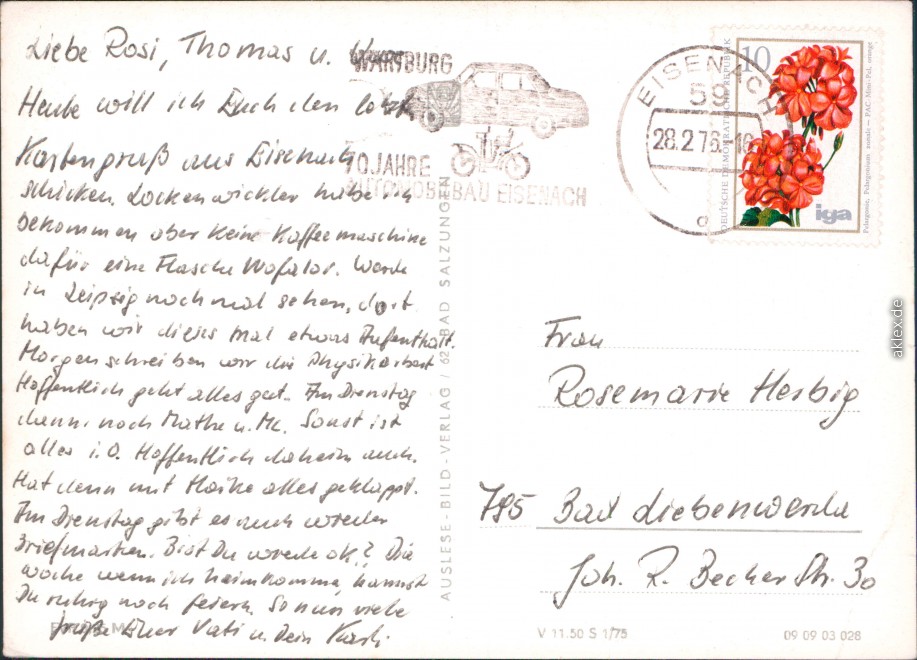 Liebe Rosi, Thomas u.
Heute will ich Euch den letzt
Kartengruß aus Eisenach
schicken. Lockenwickler habe ich
bekommen aber keine Kaffeemaschine
dafür eine Flasche Wofalor. Werde
in Leipzig noch mal sehen, dort
haben wir dieses Mal etwas Aufenthalt.
Morgen schreiben wir die Physikarbeit
Hoffentlich geht alles gut. Am Dienstag
dann noch Mathe u. Sonst ist
alles i.O. Hoffentlich daheim auch.
Hat denn mit Heike alles geklappt.
Am Dienstag gibt es auch wieder
Briefmarken. Bist Du wieder ok? Die
Woche wenn ich heimkomme, kannst
Du ruhig noch feiern. So nun viele
Grüße Euer Vati u. Dein
WARTBURG
70 JAHRE
AUTOMOBILBAU EISENACH
EISENACH
59
28.2.76.-16
10
DEUTSCHE DEMOKRATISCHE REPUBLIK
iga
AUSLESE-BILD-VERLAG / 62 BAD SALZUNGEN
Frau
Rosemarie Herbig
795 Bad Liebenwerda
Joh. R. Becher Str. 30
V 11.50 S 1/75
09 09 03 028
aklex.de